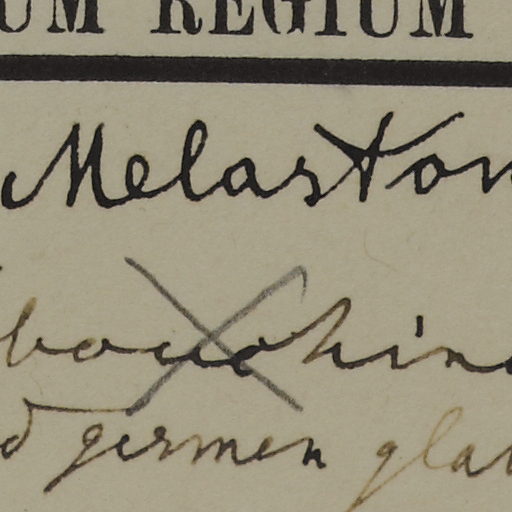 UM REGIUM
Melaston
bouchina
d germen glab